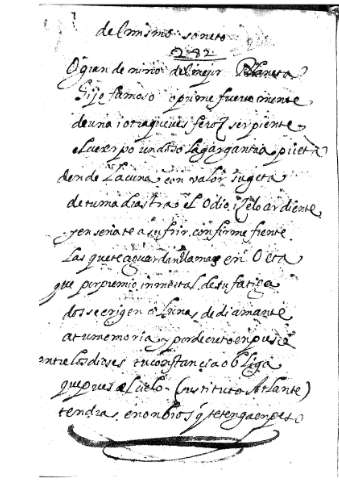 del mismo soneto
282
O gran de niño del mejor Planeta
hijo famoso oprime fuerte mente
de una i otra que ves feroz serpiente
el cuerpo undoso la garganta prieta
den de la cuna con valor sugeta
de tu madrastra el Odio i Zelo ardiente
y enseñate a sufrir con firme frente
las que te aguardan llamas en Oeta
que por premio inmortal de tu fatiga
dos se erigen Colunas de diamante
a tu memoria y por decreto
entre los dioses tu constancia obliga
que pues al cielo (sustituto Atlante)
tendras en onbros q te tenga